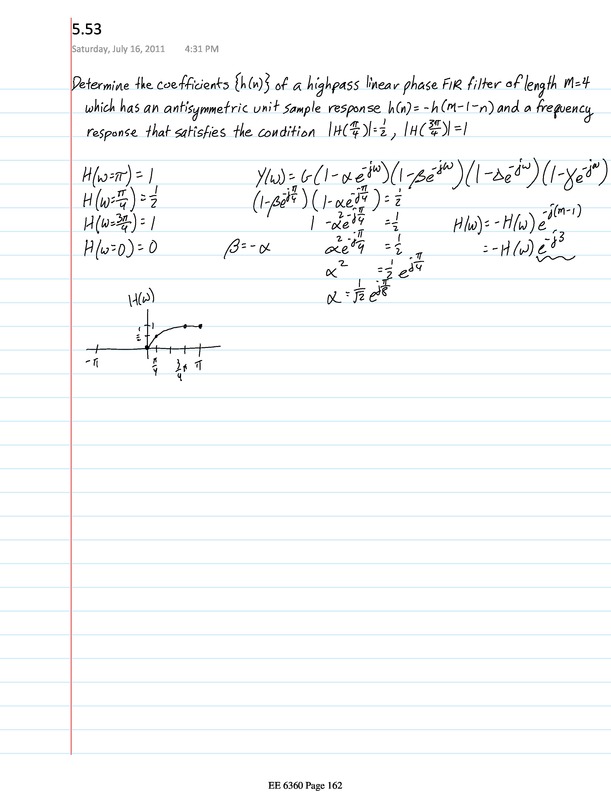 5.53
Saturday, July 16, 2011 4:31 PM
Determine the coefficients {h(n)} of a highpass linear phase FIR filter of length M=4
which has an antisymmetric unit sample response h(n)=-h(M-1-n) and a frequency
response that satisfies the condition |H(π/4)|=1/2, |H(3π/4)|=1
H(ω=π)=1
H(ω=π/4)=1/2
H(ω=3π/4)=1
H(ω=0)=0
Y(ω)=G(1-αe^-jω)(1-βe^-jω)(1-Δe^-jω)(1-γe^-jω)
(1-βe^-jπ/4)(1-αe^-jπ/4)=1/2
1-α²e^-jπ/4=1/2
β=-α
α²e^-jπ/4=1/2
α²=1/2 e^jπ/4
α=1/√2 e^jπ/8
H(ω)=-H(ω)e^-j(M-1)
=-H(ω)e^-j3
H(ω)
1
1/2
-π π/4 3/4π π
EE 6360 Page 162